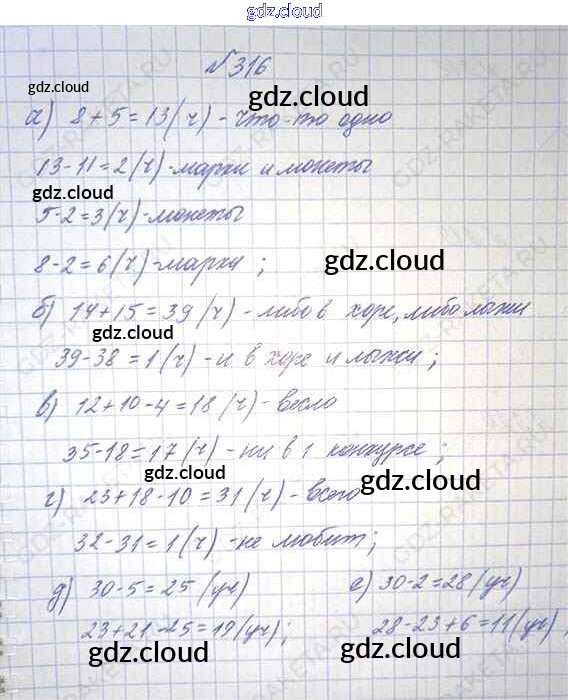 gdz.cloud
№316
а) 8+5=13(ч)-что-то одно
13-11=2(ч)-марки и монеты
5-2=3(ч)-монеты
8-2=6(ч)-марки;
б) 14+15=39(ч)-либо в хоре, либо лыжи
39-38=1(ч)-и в хоре и лыжи;
в) 12+10-4=18(ч)-всего
35-18=17(ч)-ни в 1 конкурсе;
г) 23+18-10=31(ч)-всего
32-31=1(ч)-не любит;
д) 30-5=25(уч) е) 30-2=28(уч)
23+21-25=19(уч); 28-23+6=11(уч),
gdz.cloud
gdz.cloud
gdz.cloud
gdz.cloud
gdz.cloud
gdz.cloud
gdz.cloud
gdz.cloud
gdz.cloud
gdz.cloud
gdz.cloud